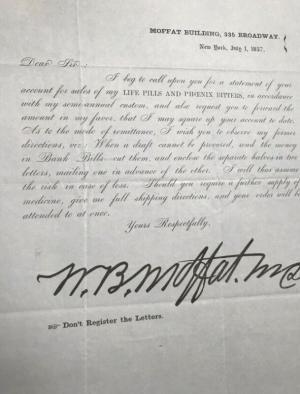 MOFFAT BUILDING, 335 BROADWAY.
New York, July 1, 1857.
Dear Sir:
I beg to call upon you for a statement of your
account for sales of my LIFE PILLS AND PHŒNIX BITTERS, in accordance
with my semi-annual custom, and also request you to forward the
amount in my favor, that I may square up your account to date.
As to the mode of remittance, I wish you to observe my former
directions, viz: When a draft cannot be procured, send the money
in Bank Bills—cut them, and enclose the separate halves in two
letters, mailing one in advance of the other. I will thus assume
the risk in case of loss. Should you require a further supply of
medicine, give me full shipping directions, and your order will be
attended to at once.
Yours Respectfully,
W. B. Moffat. M.D.
☞ Don't Register the Letters.